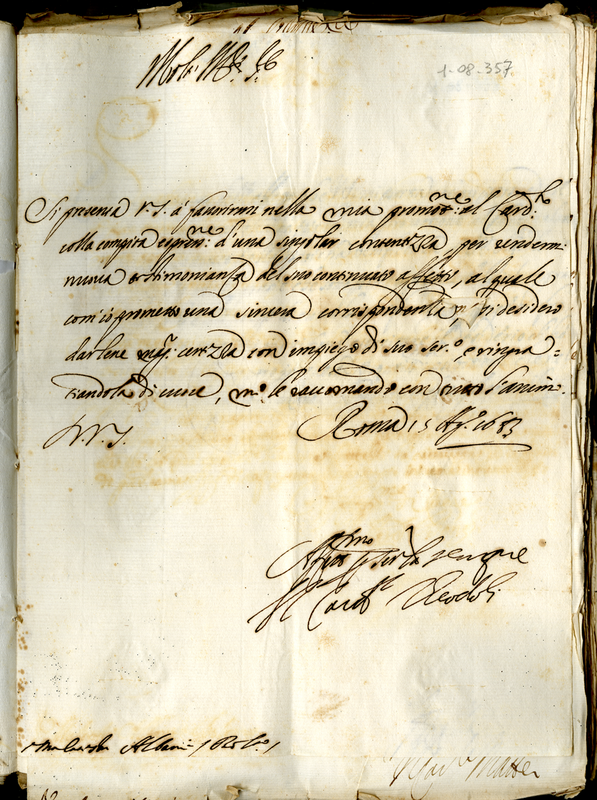 Molt' Ill.re Sig.re
1-08-357.
Si presenta V.S. à favorirmi nella mia promoz.ne al Card.to
colla compita espress.ne d'una singolar contentezza per rendermi
nuova testimonianza del suo continuato affetto, al quale
com'io prometto una sincera corrispondenza, desidero
darlene mag.r certezza con impiego di suo ser.o e ringra=
tiandola di cuore, me le raccomando con tutto l'anim.
V.S.
Roma 15 Ag.o 1643
Aff.mo sempre
Il Card.l Teodoli
Albani